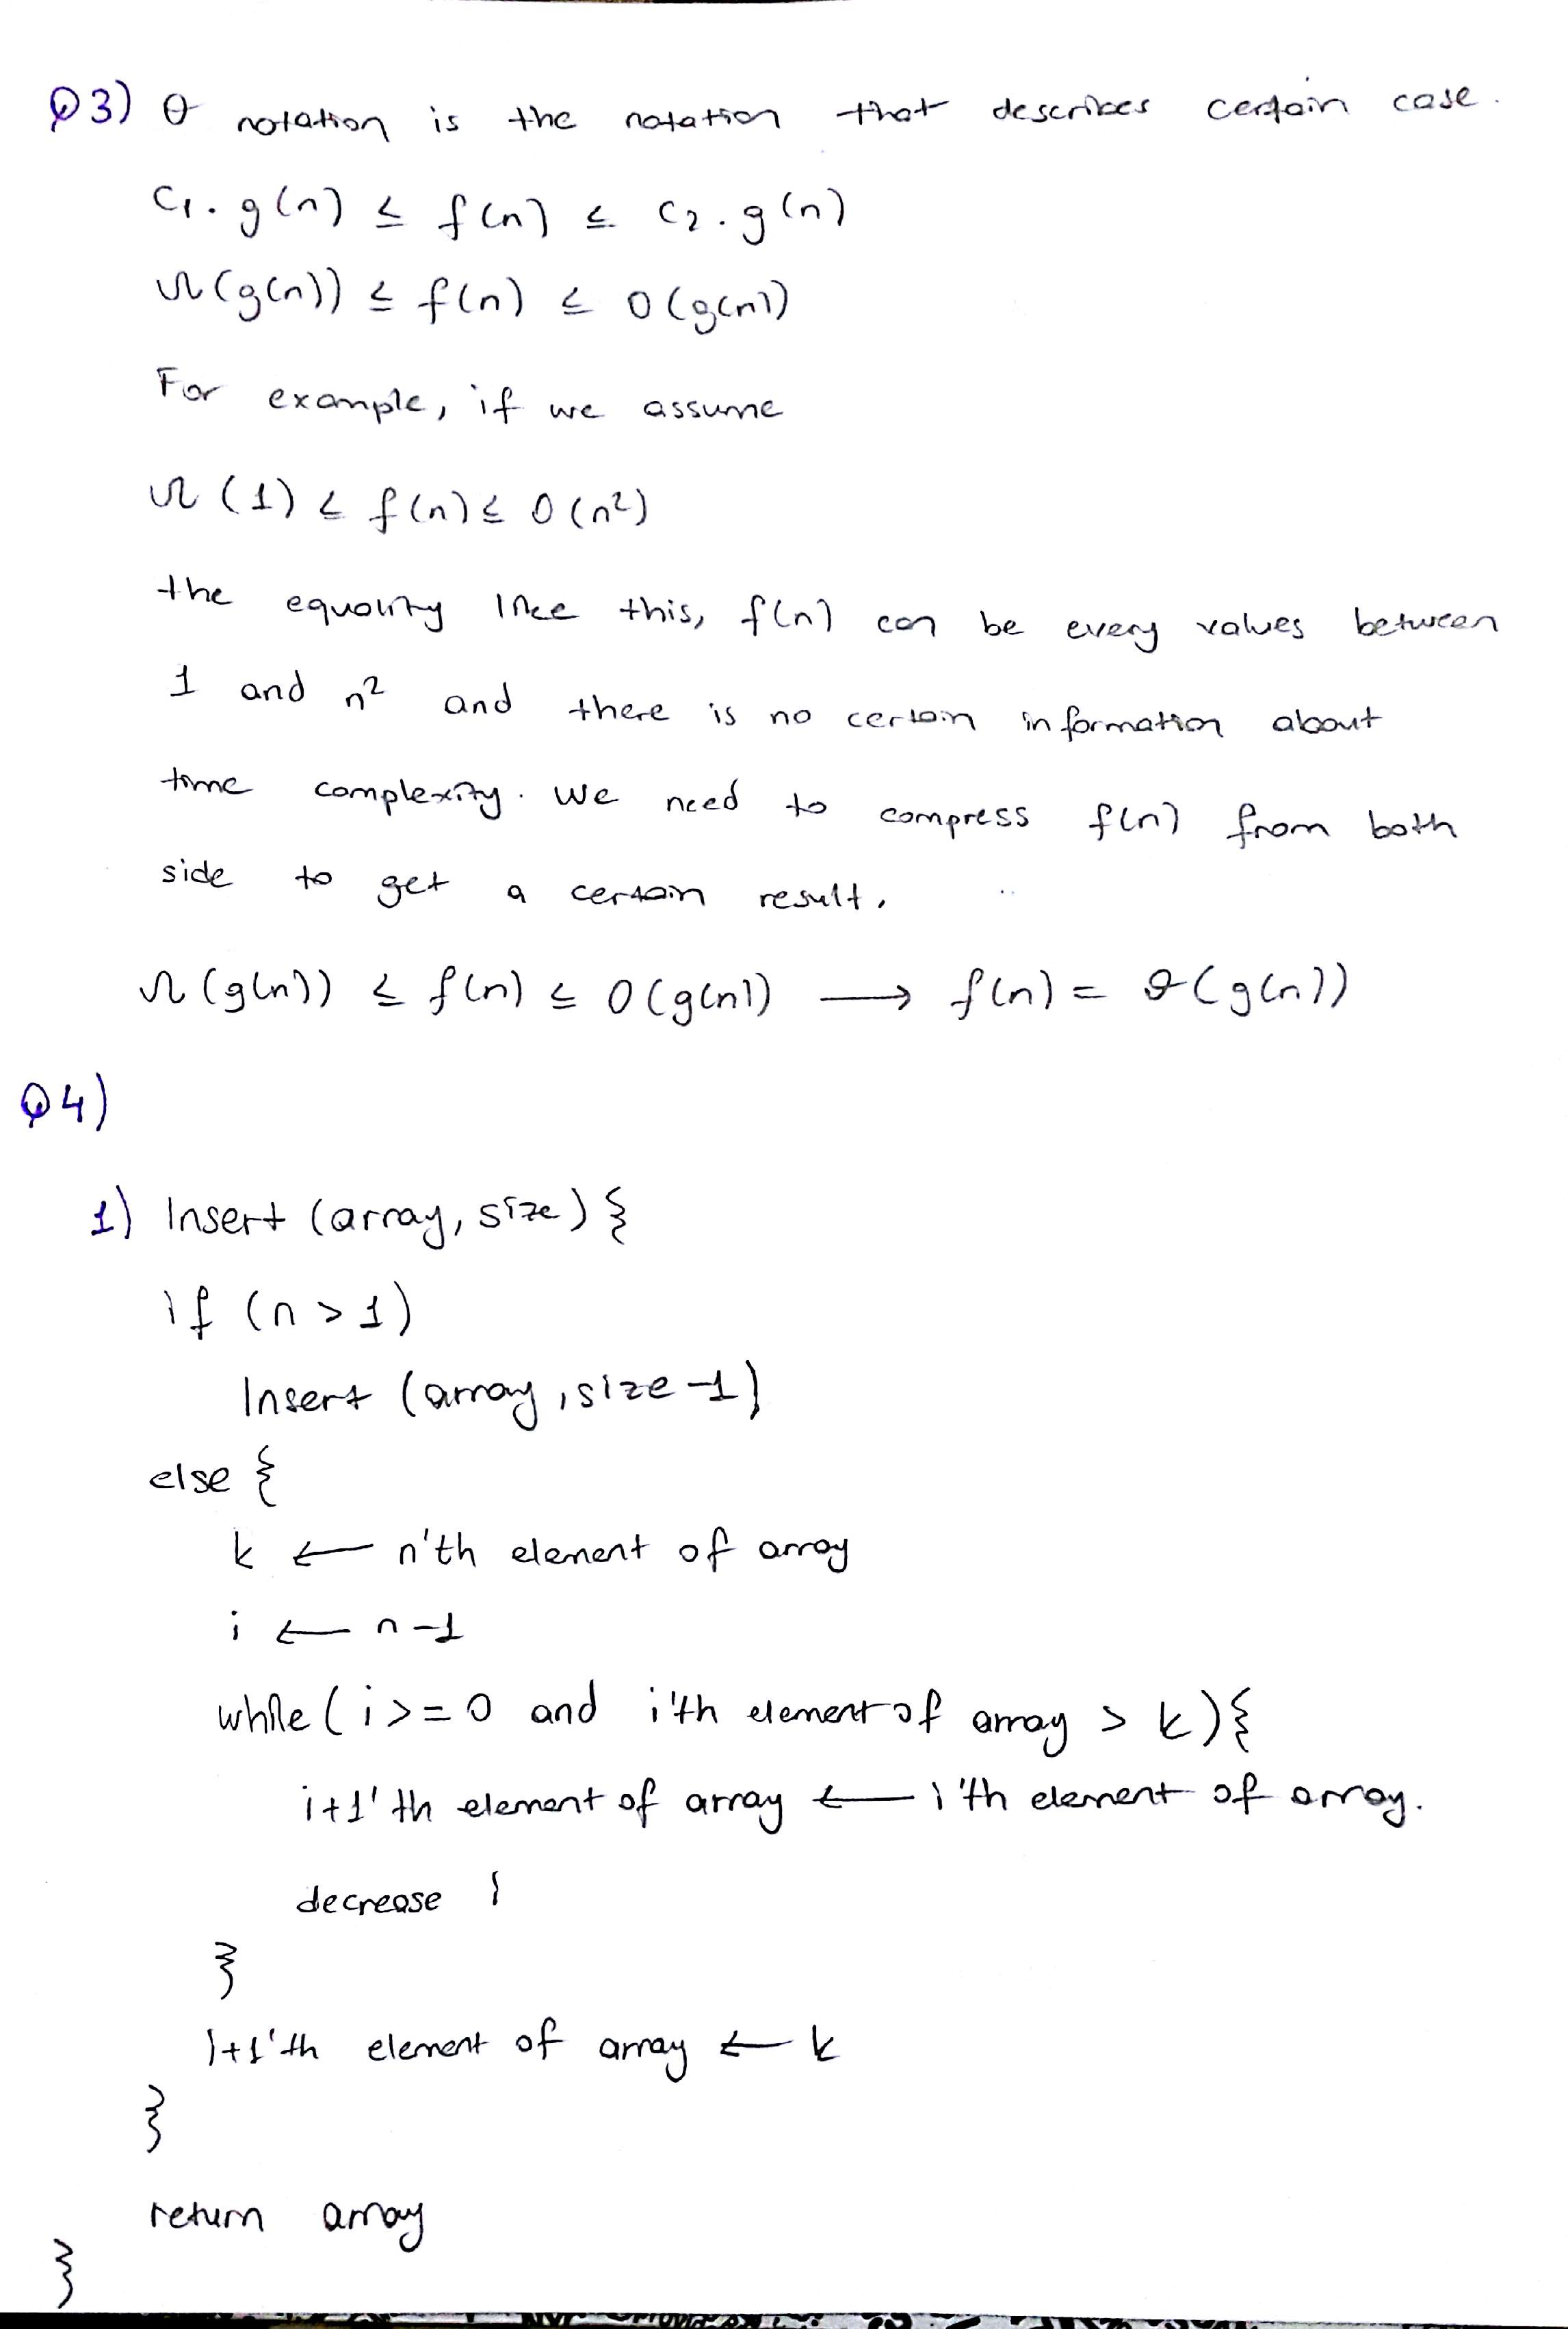 Q3) θ notation is the notation that describes certain case.
C₁.g(n) ≤ f(n) ≤ C₂.g(n)
Ω(g(n)) ≤ f(n) ≤ O(g(n))
For example, if we assume
Ω(1) ≤ f(n) ≤ O(n²)
the equality like this, f(n) can be every values between
1 and n² and there is no certain information about
time complexity. We need to compress f(n) from both
side to get a certain result.
Ω(g(n)) ≤ f(n) ≤ O(g(n)) → f(n) = θ(g(n))
Q4)
1) Insert (array, size) {
if (n > 1)
Insert (array, size-1)
else {
k ← n'th element of array
i ← n-1
while (i >= 0 and i'th element of array > k) {
i+1'th element of array ← i'th element of array.
decrease i
}
i+1'th element of array ← k
}
return array
}